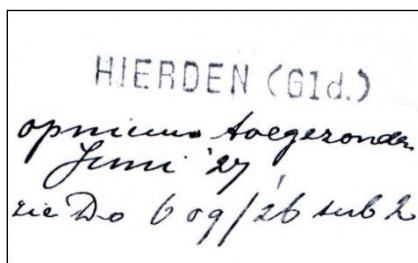 HIERDEN (Gld.)
opnieuw toegezonden
Juni '27
zie Do 609/26 sub 2